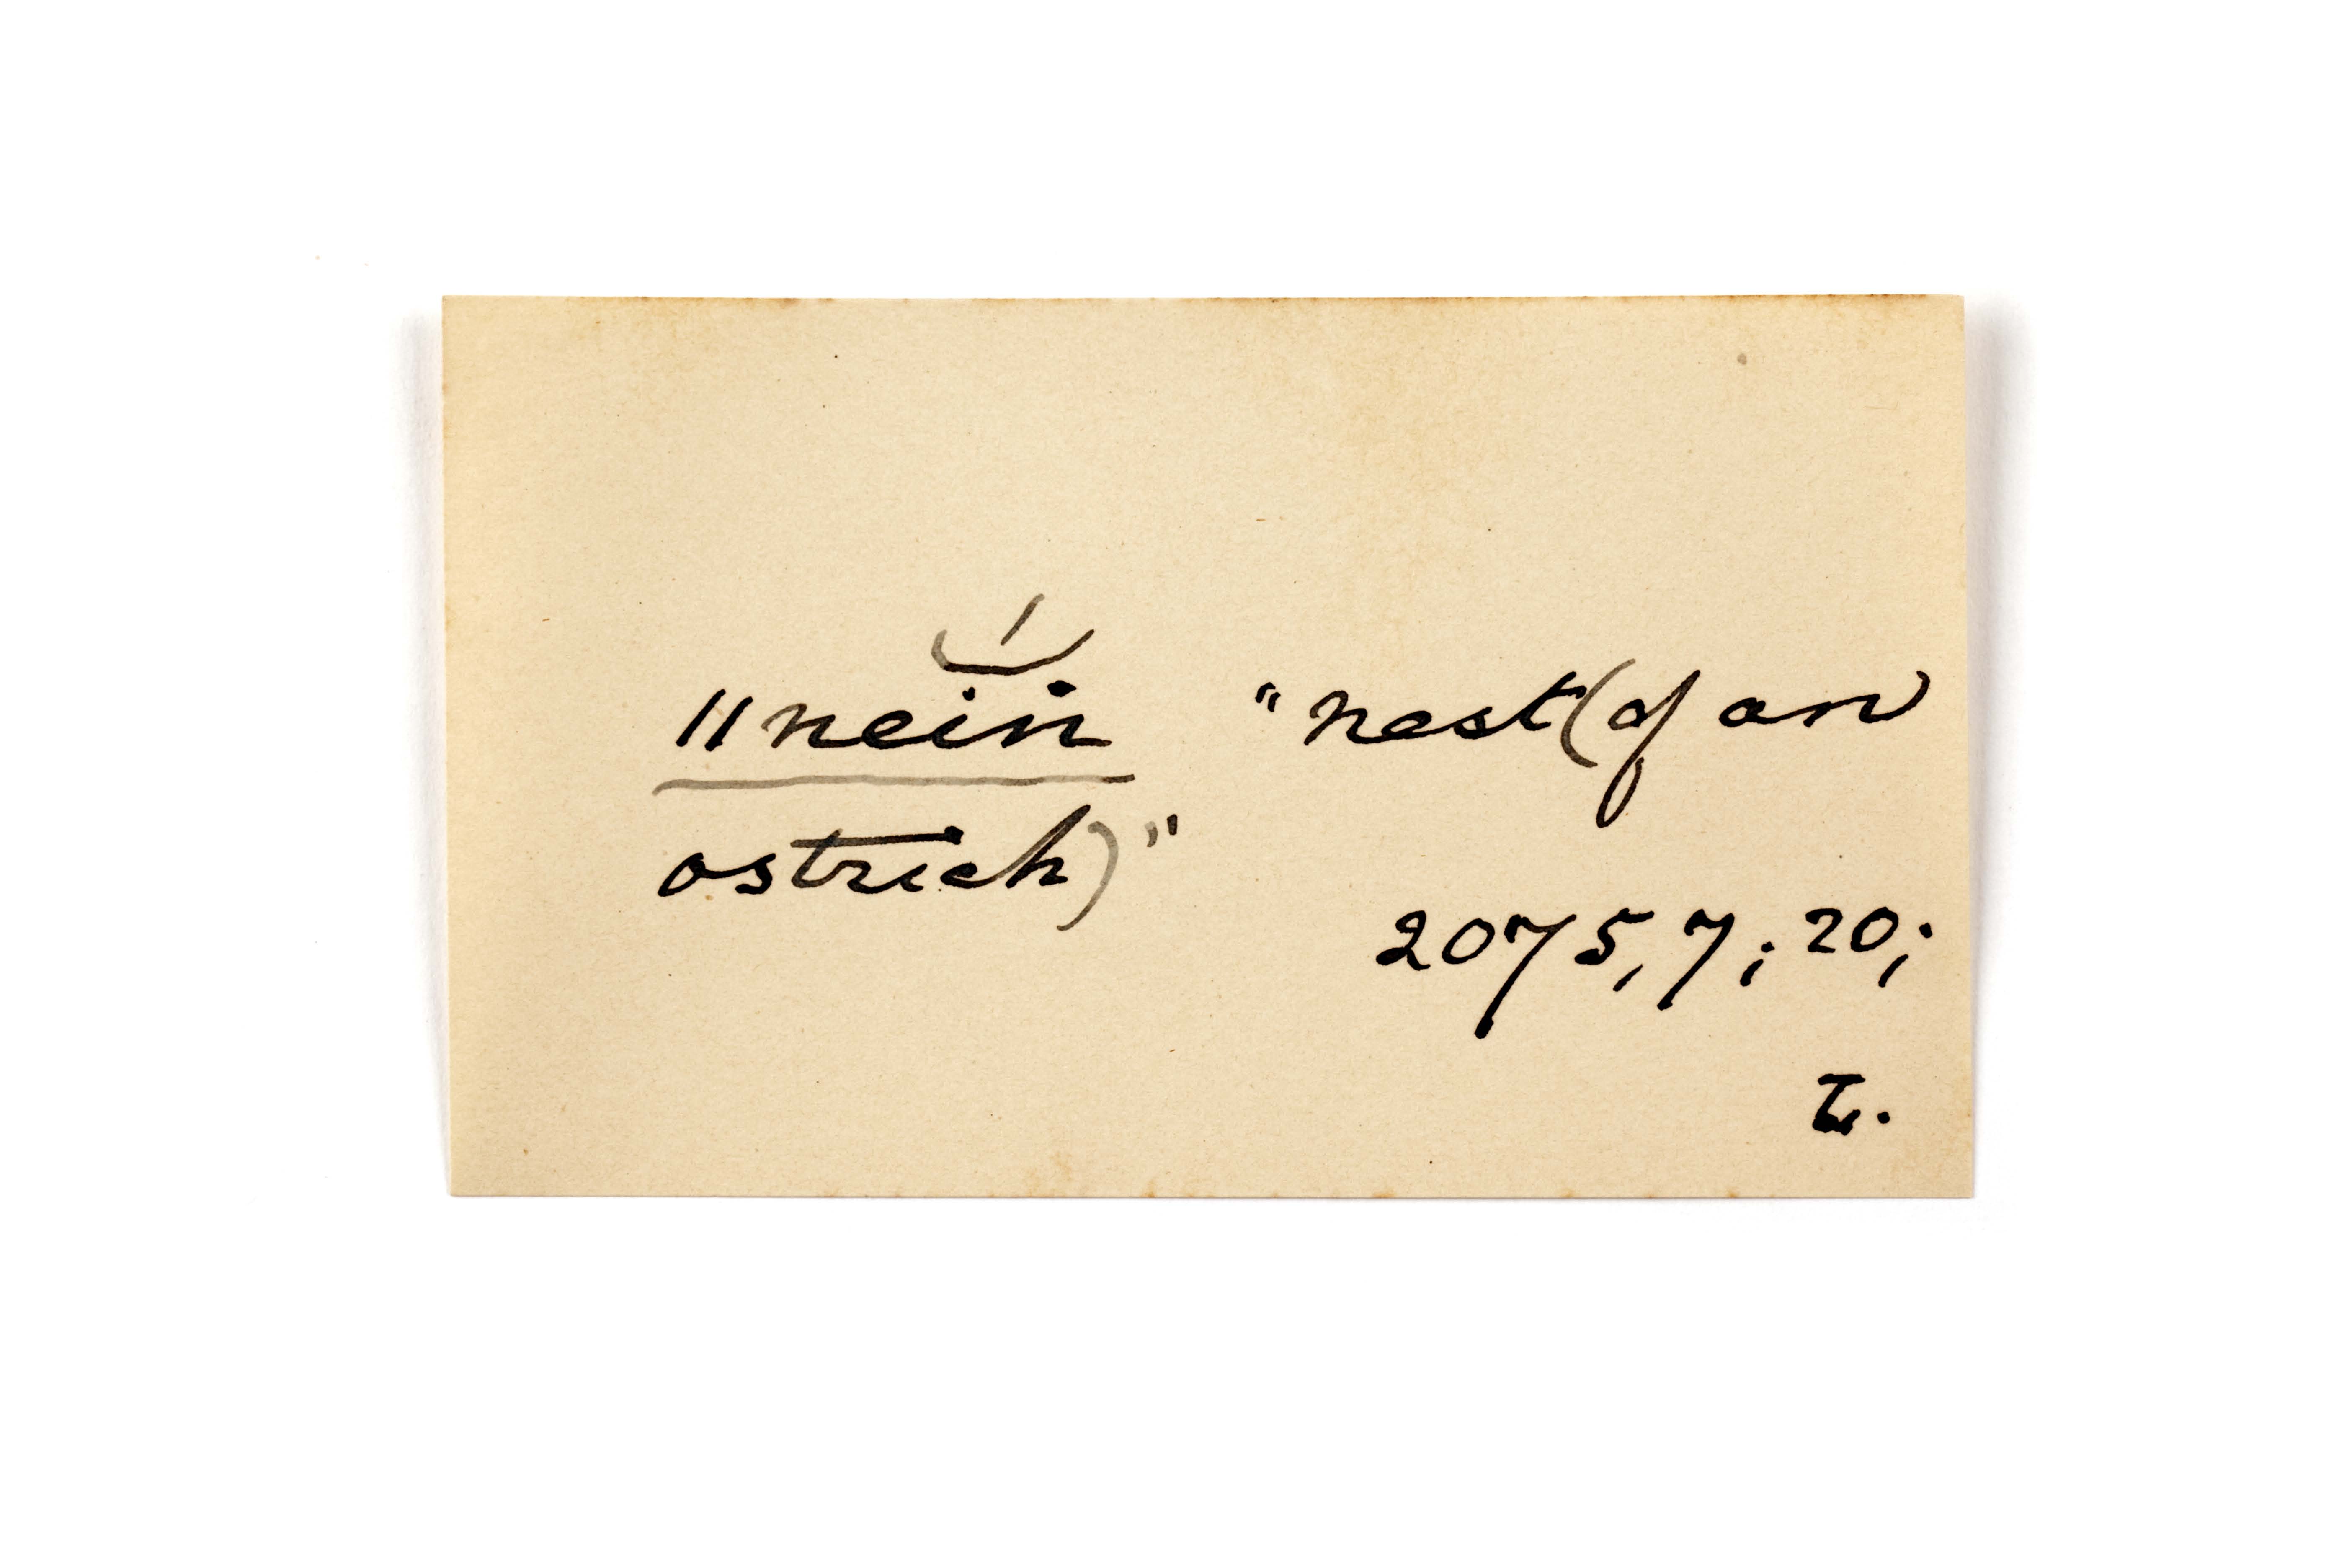 ǁnein "nest (of an
ostrich)"
2075, 7; 20;